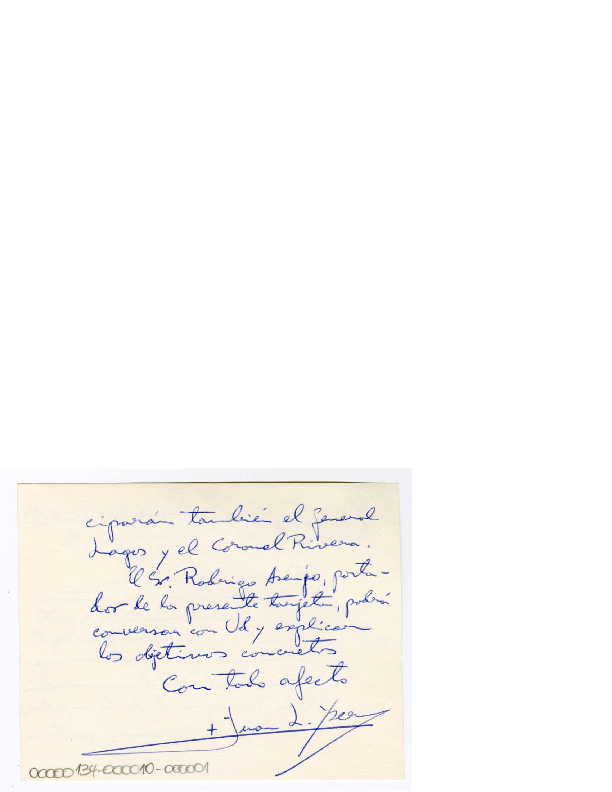 ciparán también el General
Lagos y el Coronel Rivera.
El Sr. Rodrigo Asenjo, porta-
dor de la presente tarjeta, podrá
conversar con Ud y explicar
los objetivos concretos
Con todo afecto
+ Juan L. Ysern
00000134-000010-000001